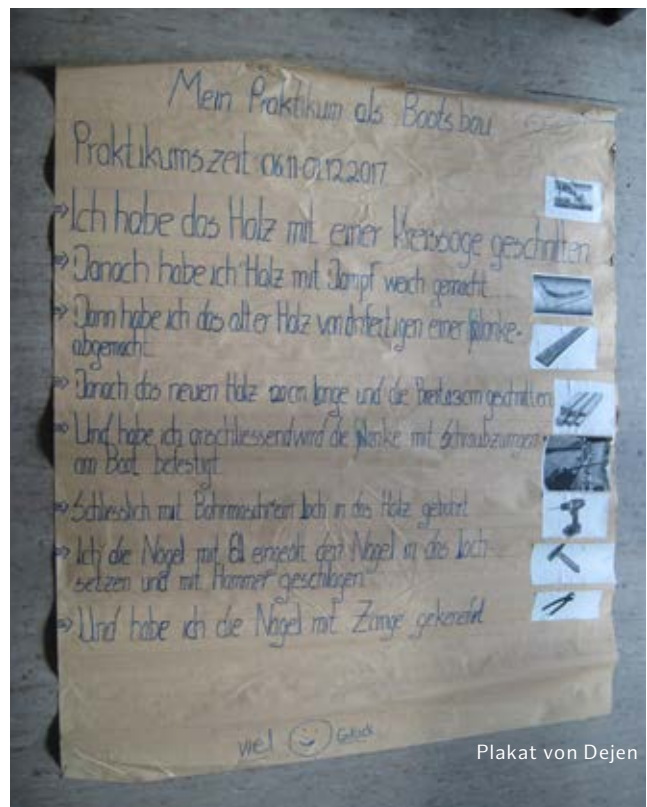 Mein Praktikum als Bootsbau
Praktikumszeit 06.11-01.12.2017
⇒ Ich habe das Holz mit einer Kreissäge geschnitten
⇒ Danach habe ich Holz mit Dampf weich gemacht
⇒ Dann habe ich das alter Holz von Anfertigen einer Planke
abgemacht
⇒ Danach das neuen Holz lange und die geschnitten
⇒ Und habe ich anschliessend wird die Planke mit Schraubzwingen
am Boot befestigt
⇒ Schliesslich mit Loch in das Holz gebohrt
⇒ Ich die Nägel mit Öl eingeölt den Nagel in das Loch
setzen und mit Hammer geschlagen
⇒ Und habe ich die Nägel mit Zange
viel Glück
Plakat von Dejen